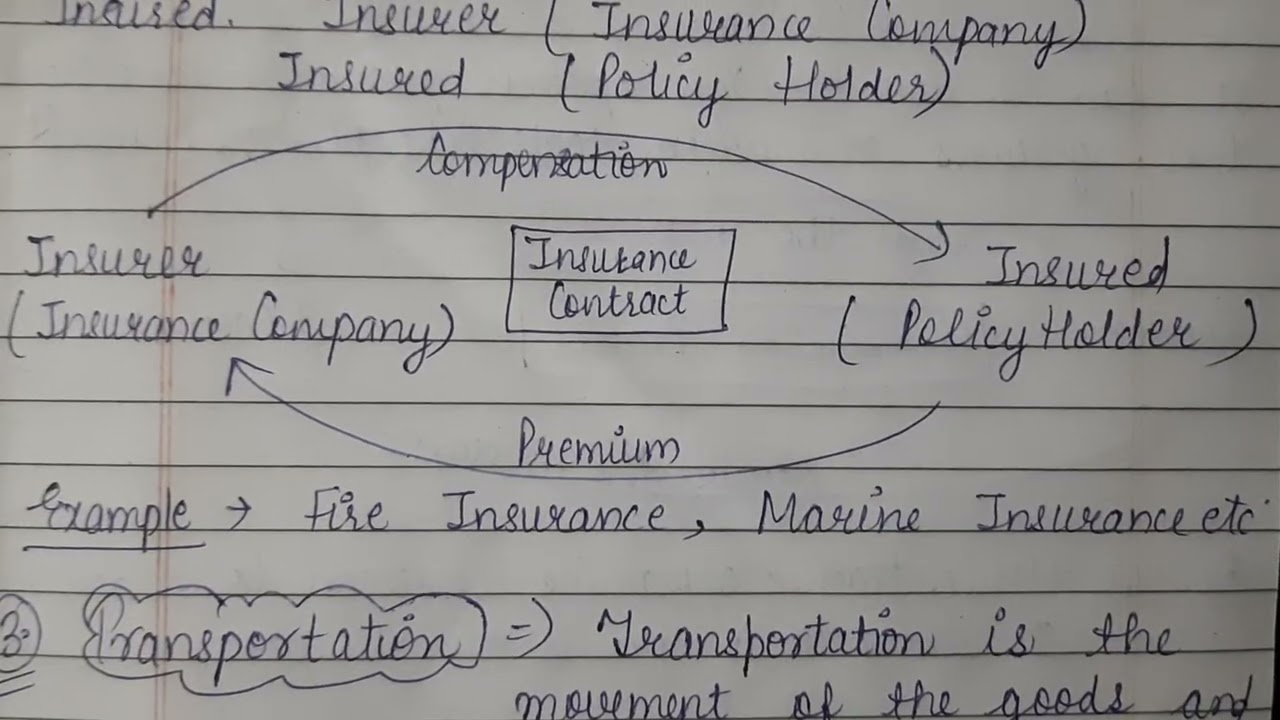 Insured. Insurer ( Insurance Company)
Insured (Policy Holder)
Compensation
Insurer
(Insurance Company)
Insurance
Contract
Insured
( Policy Holder )
Premium
Example → Fire Insurance, Marine Insurance etc.
3. Transportation => Transportation is the
movement of the goods and